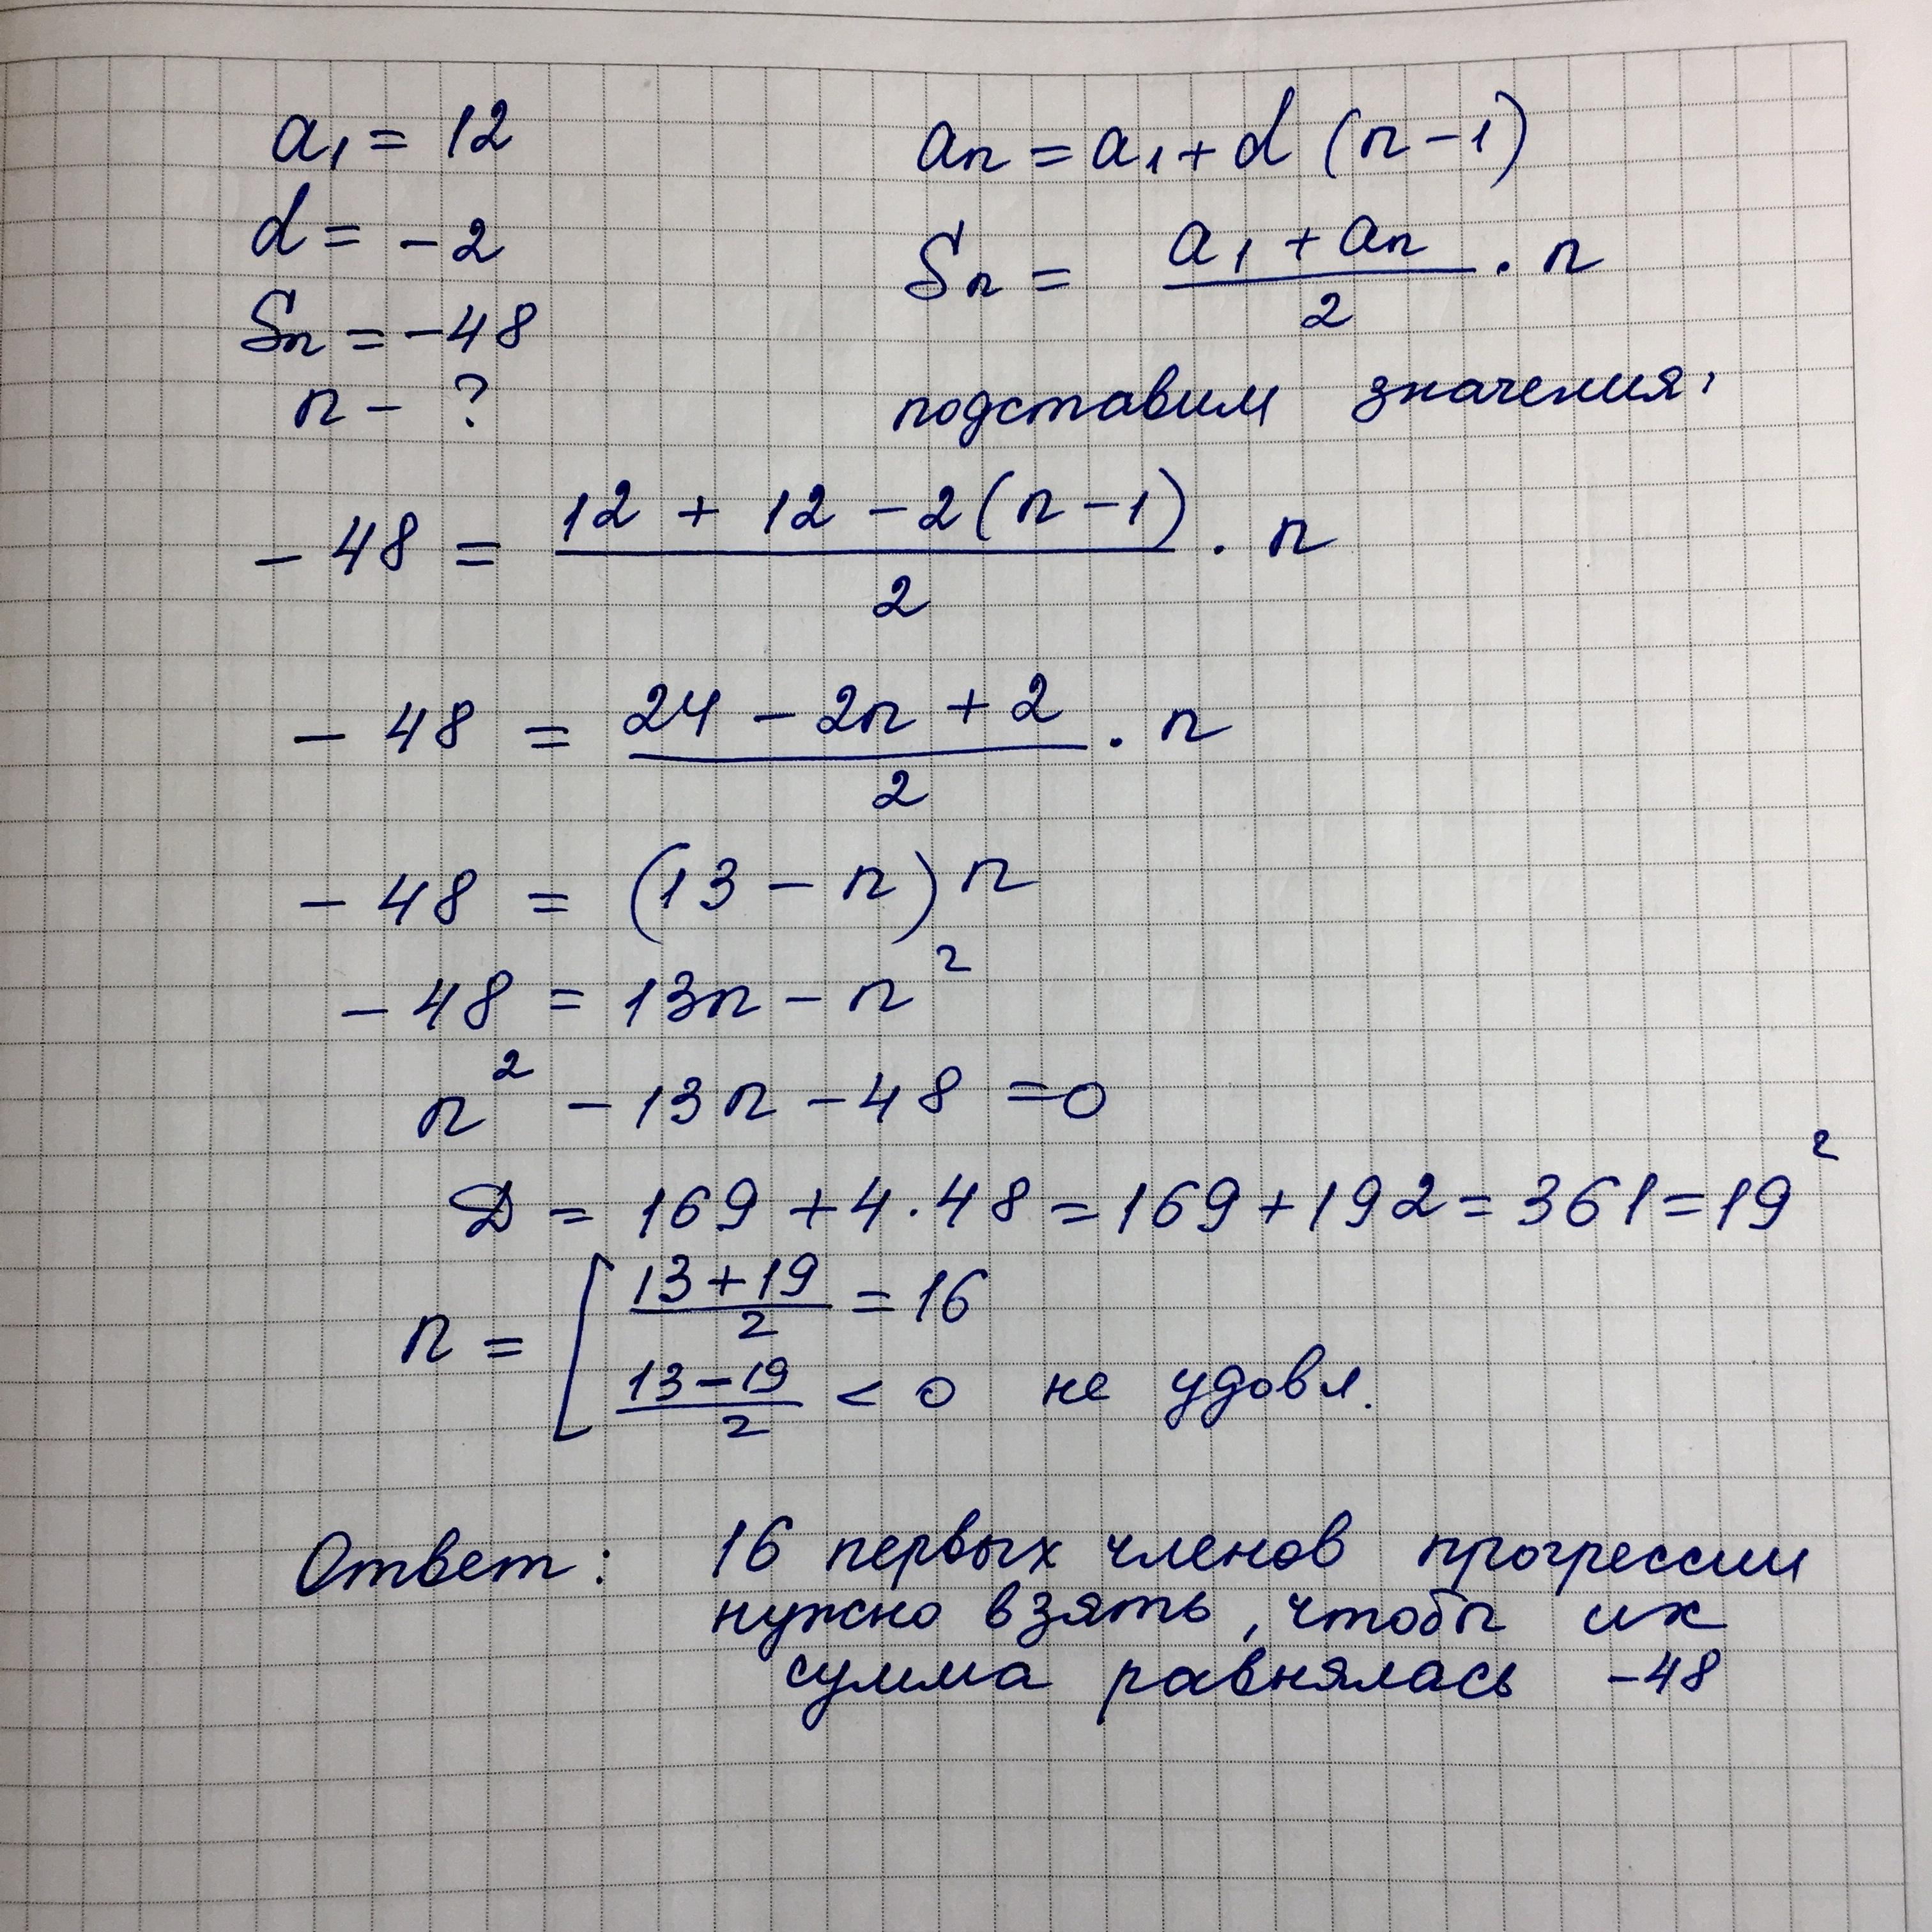 a₁ = 12
d = -2
Sn = -48
n - ?
an = a₁ + d (n-1)
Sn = (a₁ + an)/2 · n
подставим значения:
-48 = (12 + 12 - 2(n-1))/2 · n
-48 = (24 - 2n + 2)/2 · n
-48 = (13 - n) n
-48 = 13n - n²
n² - 13n - 48 = 0
D = 169 + 4·48 = 169 + 192 = 361 = 19²
n = [ (13+19)/2 = 16
(13-19)/2 < 0 не удовл.
Ответ: 16 первых членов прогрессии
нужно взять, чтобы их
сумма равнялась -48